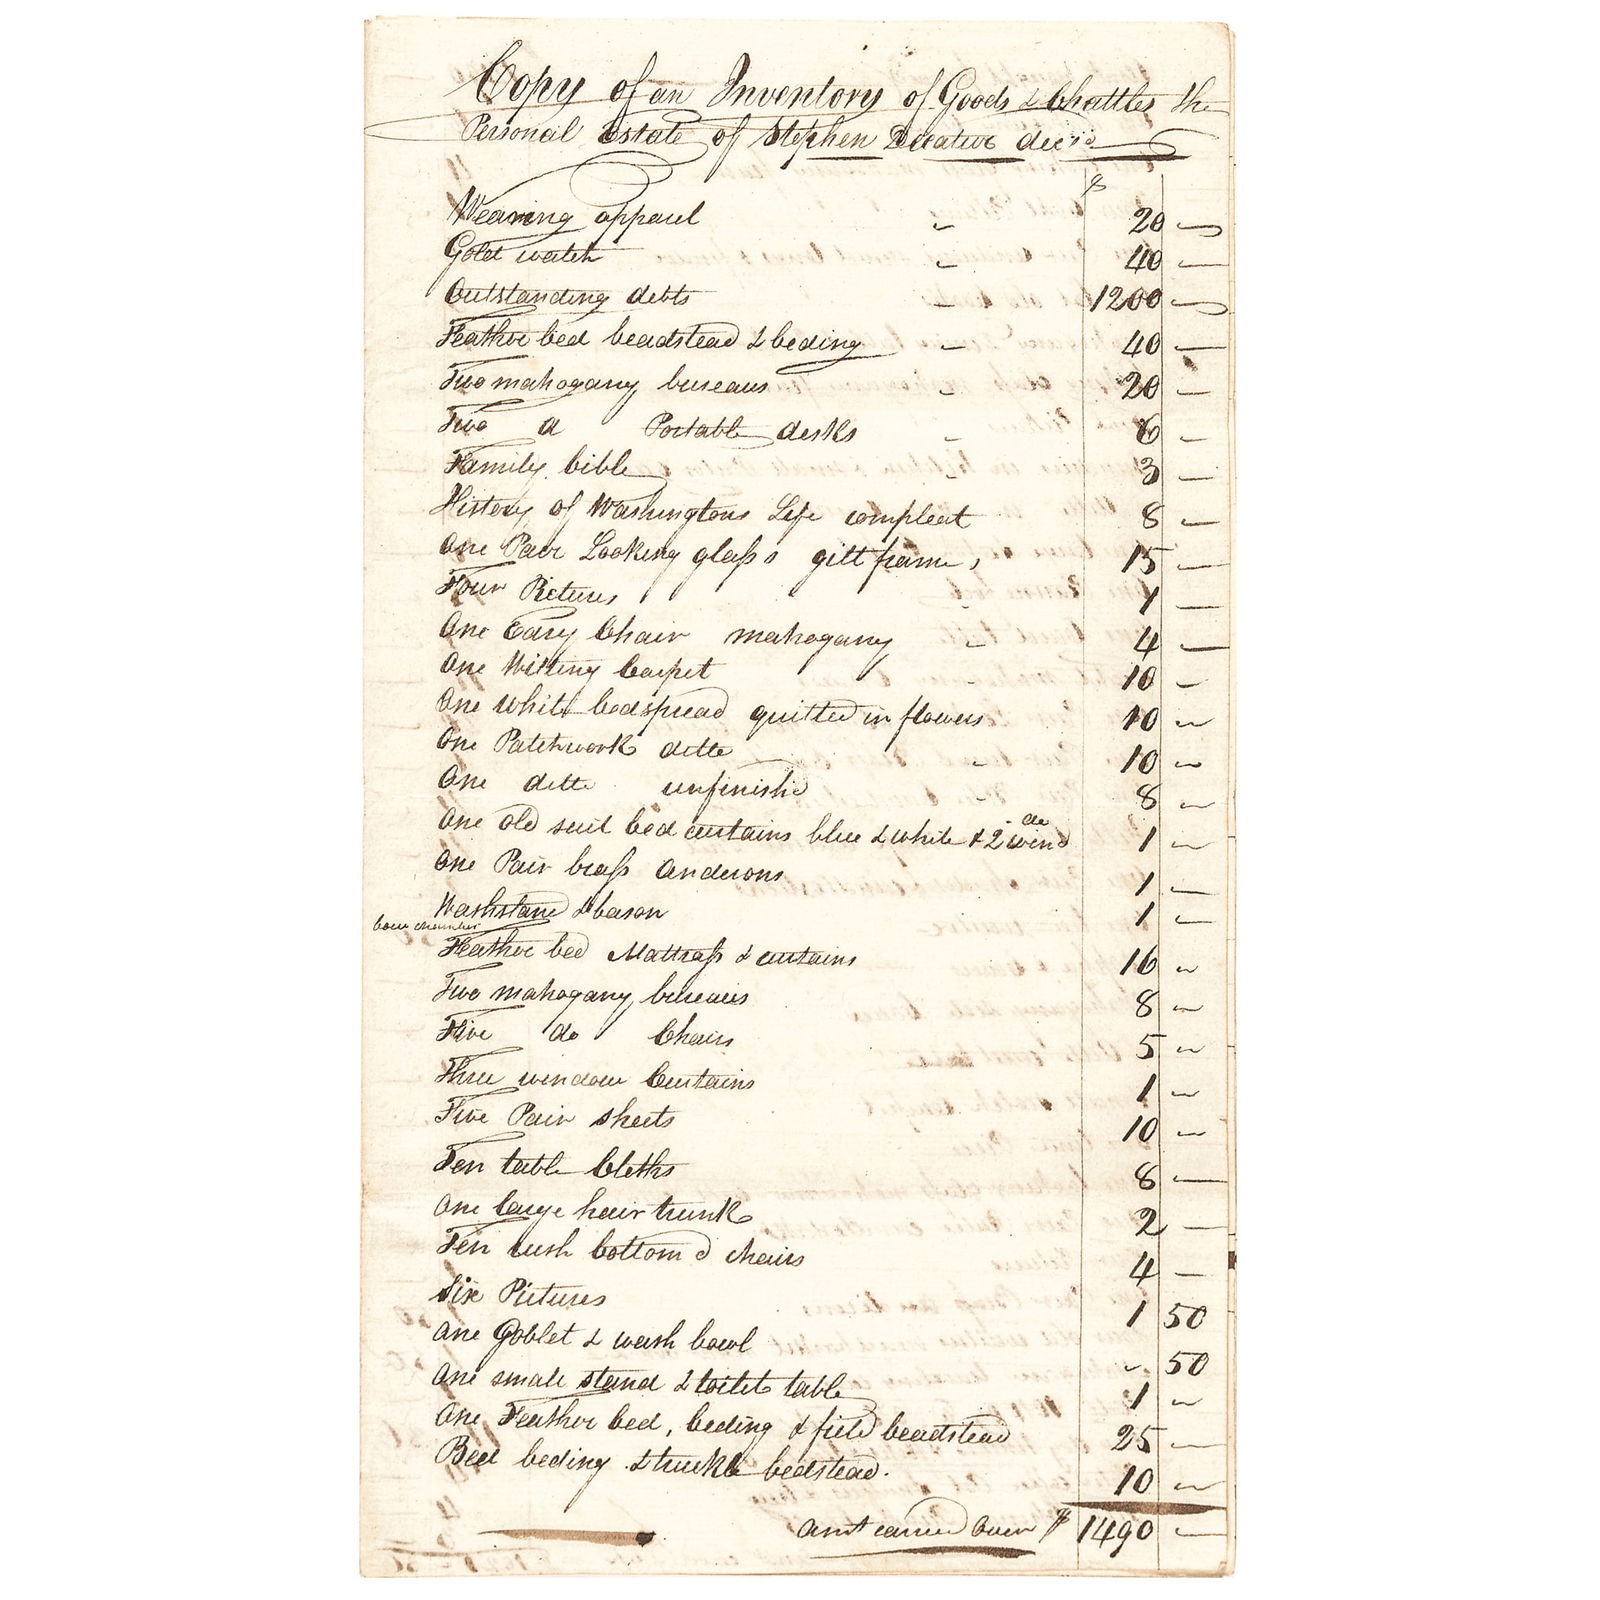 Copy of an Inventory of Goods & Chattles the
Personal Estate of Stephen Decatur decsd
$
Wearing apparel " 20 —
Gold watch " 40 —
Outstanding debts " 1200 —
Feather bed beadstead & beding " 40 —
Two mahogany bureaus " 20 —
Two d Portable desks " 6 —
Family bible 3 —
History of Washingtons Life compleat 8 —
One Pair Looking glass s gilt frame, 15 —
Four Pictures 1 —
One Easy Chair mahogany " 4 —
One Wilting Carpet 10 —
One white bedspread quilted in flowers 10 —
One Patchwork ditto " 10 —
One ditto unfinishd 8 —
One old suit bed curtains blue & white & 2 wind do 1 —
One Pair brass anderons 1 —
Washstand & bason 1 —
chamber
Feather bed Mattrass & curtains 16 —
Two mahogany bureaus 8 —
Five do Chairs 5 —
Three window Curtains 1 —
Five Pair sheets 10 —
Ten table Cloths 8 —
One large hair trunk 2 —
Ten rush bottom d chairs 4 —
Six Pictures 1 50
One Goblet & wash bowl " 50
One small stand & toilet table 1 —
One Feather bed, beding & field beadstead 25 —
Bed beding & truckle bedstead. 10 —
Amt carried Over $ 1490 —